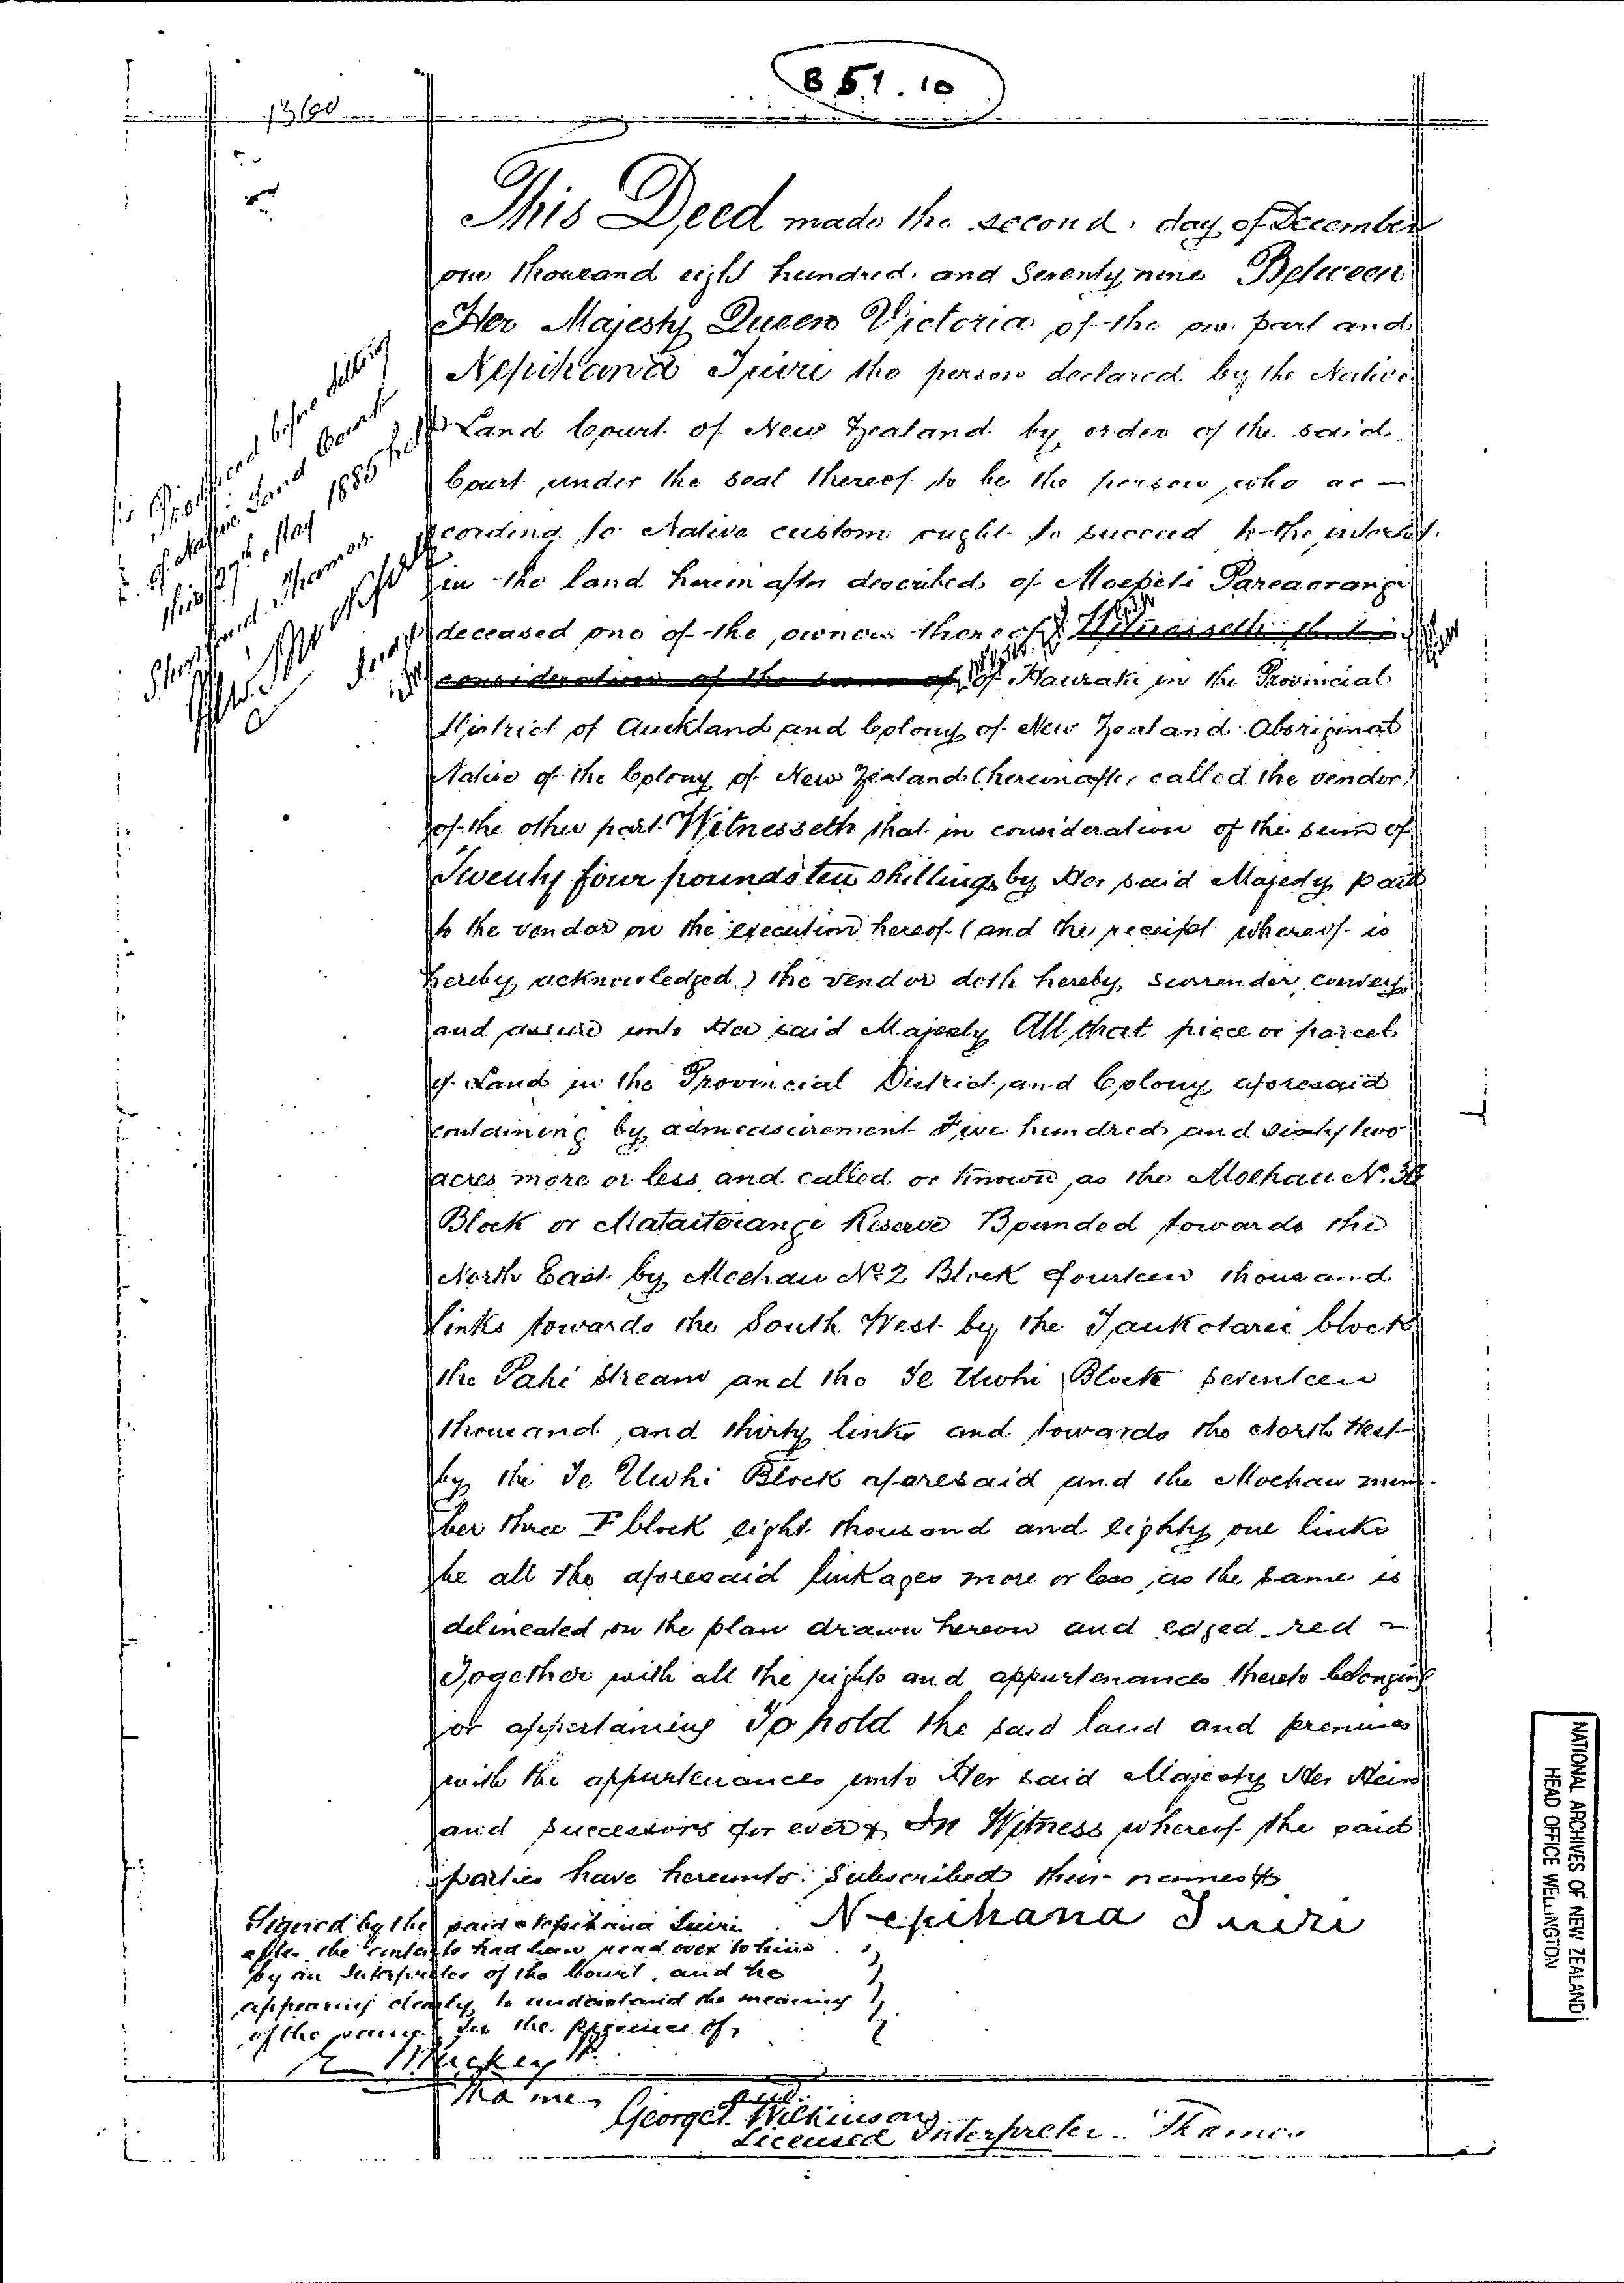 851.10
13/90
This Deed made the second day of December
one thousand eight hundred and Seventy nine Between
Her Majesty Queen Victoria of the one part and
Nepihana Tuiri the person declared by the Native
Land Court of New Zealand by order of the said
Court under the seal thereof to be the person who ac —
cording to Native custom ought to succeed to the interest
in the land herein after described of Moepeti Pareaorangi
deceased one of the owners thereof Witnesseth that in
consideration of the sum of of Hauraki in the Provincial
District of Auckland and Colony of New Zealand Aboriginal
Native of the Colony of New Zealand (hereinafter called the vendor)
of the other part Witnesseth that in consideration of the sum of
Twenty four pounds ten shillings by Her said Majesty paid
to the vendor on the execution hereof (and the receipt whereof is
hereby acknowledged) the vendor doth hereby surrender convey
and assure unto Her said Majesty All that piece or parcel
of Land in the Provincial District and Colony aforesaid
containing by admeasurement Five hundred and sixty two
acres more or less and called or known as the Moehau No.
Block or Mataiterangi Reserve Bounded towards the
North East by Moehau No 2 Block fourteen thousand
links towards the South West by the block
the Pahi Stream and the Te Uwhi Block seventeen
thousand and thirty links and towards the North West
by the Te Uwhi Block aforesaid and the Moehau num-
ber three F block eight thousand and eighty one links
be all the aforesaid linkages more or less as the same is
delineated on the plan drawn hereon and edged red
Together with all the rights and appurtenances thereto belonging
or appertaining To hold the said land and premises
with the appurtenances unto Her said Majesty Her Heirs
and successors for ever In Witness whereof the said
parties have hereunto subscribed their names
Nepihana Tuiri
Signed by the said Nepihana Tuiri
after the contents had been read over to him
by an Interpreter of the Court, and he
appearing clearly to understand the meaning
of the same In the presence of,
Thames
George T. Wilkinson
Licensed Interpreter Thames
produced before sitting
of Native Land Court
May 1885 held
Thames
NATIONAL ARCHIVES OF NEW ZEALAND
HEAD OFFICE WELLINGTON